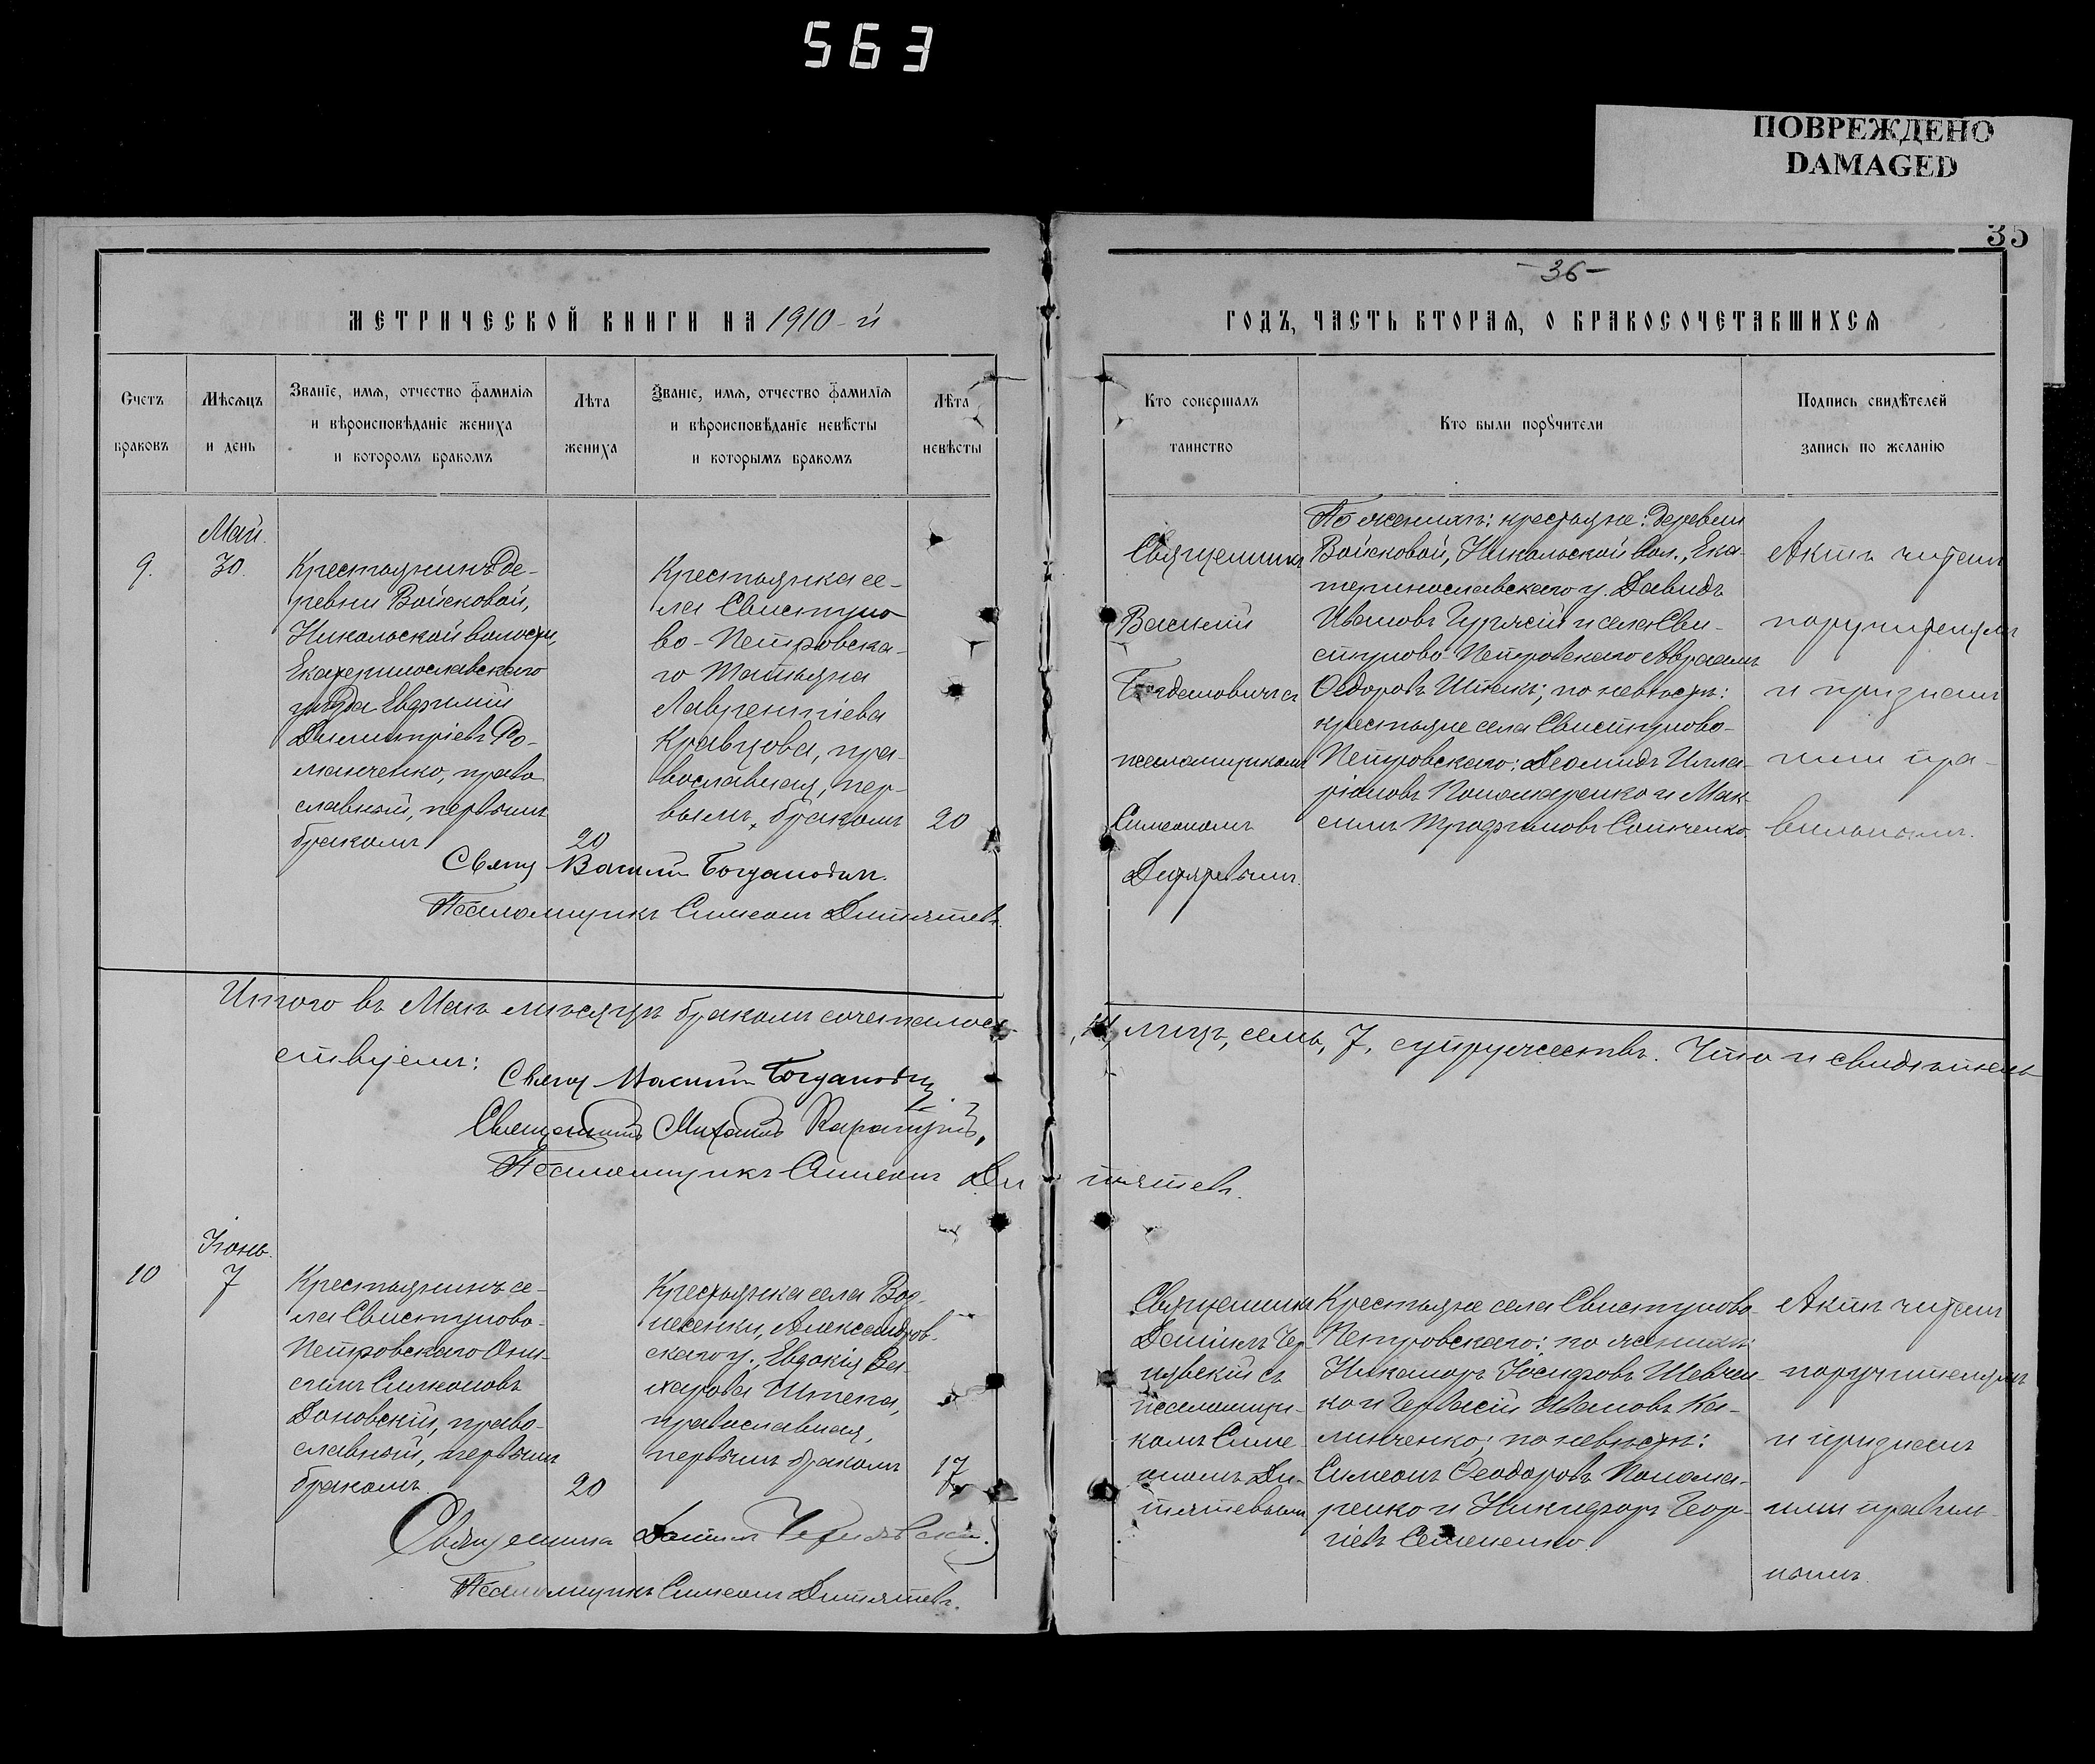 563
ПОВРЕЖДЕНО
DAMAGED
35
-36-
МЕТРИЧЕСКОЙ КНИГИ НА 1910-й
ГОДЪ, ЧАСТЬ ВТОРАЯ, О БРАКОСОЧЕТАВШИХСЯ
Счетъ
браковъ
Мѣсяцъ
и день
Званіе, имя, отчество фамилія
и вѣроисповѣданіе жениха
и которомъ бракомъ
Лѣта
жениха
Званіе, имя, отчество фамилія
и вѣроисповѣданіе невѣсты
и которымъ бракомъ
Лѣта
невѣсты
Кто совершалъ
таинство
Кто были порꙋчители
Подпись свидѣтелей
запись по желанію
9.
Май.
30.
Крестьянинъ де-
ревни Войсковой,
Никольской волости,
Екатеринославскаго
уѣзда Евфимій
Димитріевъ Ро-
манченко, право
славный, первымъ
бракомъ
20
Крестьянка се-
ла Свистуно
во-Петровска-
го Татьяна
Лаврентіева
Кравцова, пра-
вославная, пер-
вымъ бракомъ
20
Священникъ
Василій
Богдановичъ съ
псаломщикомъ
Симеономъ
По женихѣ: крестьяне: деревни
Войсковой, Никольской вол., Ека-
теринославскаго у. Давидъ
Ивановъ и села Сви-
стуново-Петровскаго Авраамъ
Ѳедоровъ; по невѣстѣ:
крестьяне села Свистуново-
Петровскаго: Леонидъ Илла-
ріоновъ Пономаренко и Мак
симъ Трофимовъ
Актъ читанъ
поручителямъ
и признанъ
ими пра-
вильнымъ.
Свящ Василій Богдановичъ.
Псаломщикъ Симеонъ Дитятевъ.
Итого въ Маѣ мѣсяцѣ бракомъ сочеталось
14, лицъ, семь, 7, супружествъ. Что и свидѣтель-
ствуемъ:
Свящ Василій Богдановичъ
Священникъ Михаилъ
Псаломщикъ Симеонъ Ди
тятевъ.
10
Іюнь.
7
Крестьянинъ се-
ла Свистуново-
Петровскаго Они-
симъ Симеоновъ
Доновскій, право-
славный, первымъ
бракомъ.
20
Крестьянка села Воз-
несенки, Александров-
скаго у., Евдокія За-
харова Штепа,
православная,
первымъ бракомъ
17
Священникъ
Даніилъ Чер-
нявскій съ
псаломщи-
комъ Симе
ономъ Ди-
тятевымъ
Крестьяне села Свистуново-
Петровскаго: по женихѣ:
Никаноръ Іосифовъ Шевчен-
ко и Гервасій Ивановъ Ка-
линченко; по невѣстѣ:
Симеонъ Ѳеодоровъ Понома-
ренко и Никифоръ Геор-
гіевъ Семененко.
Актъ читанъ
поручителямъ
и признанъ
ими правиль-
нымъ.
Священникъ Даніилъ Чернявскій
Псаломщикъ Симеонъ Дитятевъ.